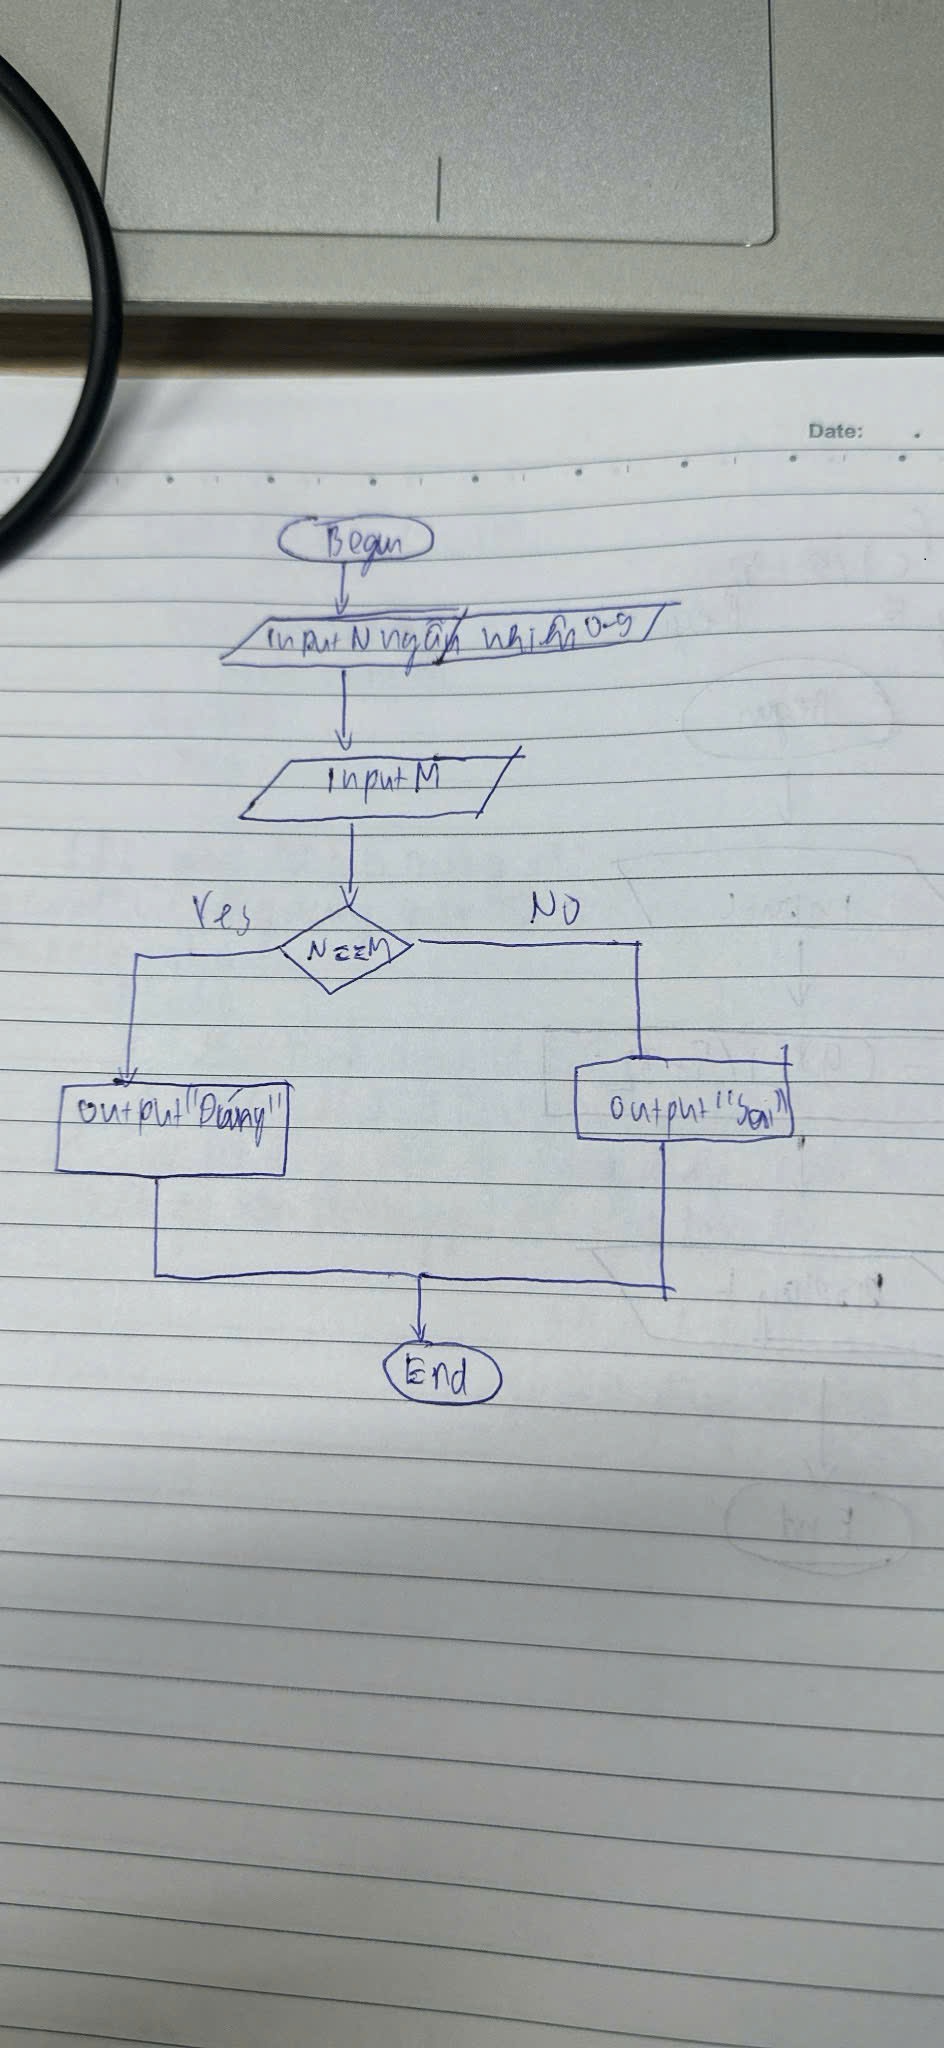 Date:
Begin
Input N ngẫu nhiên 0-9
Input M
Yes
No
N==M
Output "Đúng"
Output "Sai"
End